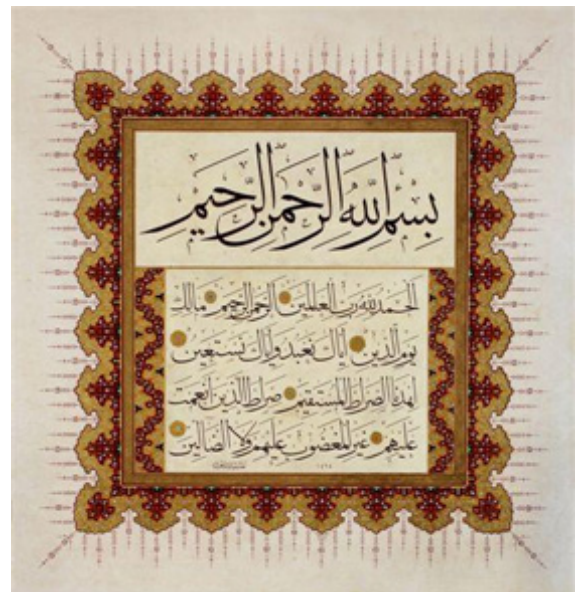 بِسْمِ اللَّهِ الرَّحْمَنِ الرَّحِيمِ
الحمد لله رب العالمين الرحمن الرحيم مالك
يوم الدين اياك نعبد واياك نستعين
اهدنا الصراط المستقيم صراط الذين انعمت
عليهم غير المغضوب عليهم ولا الضالين